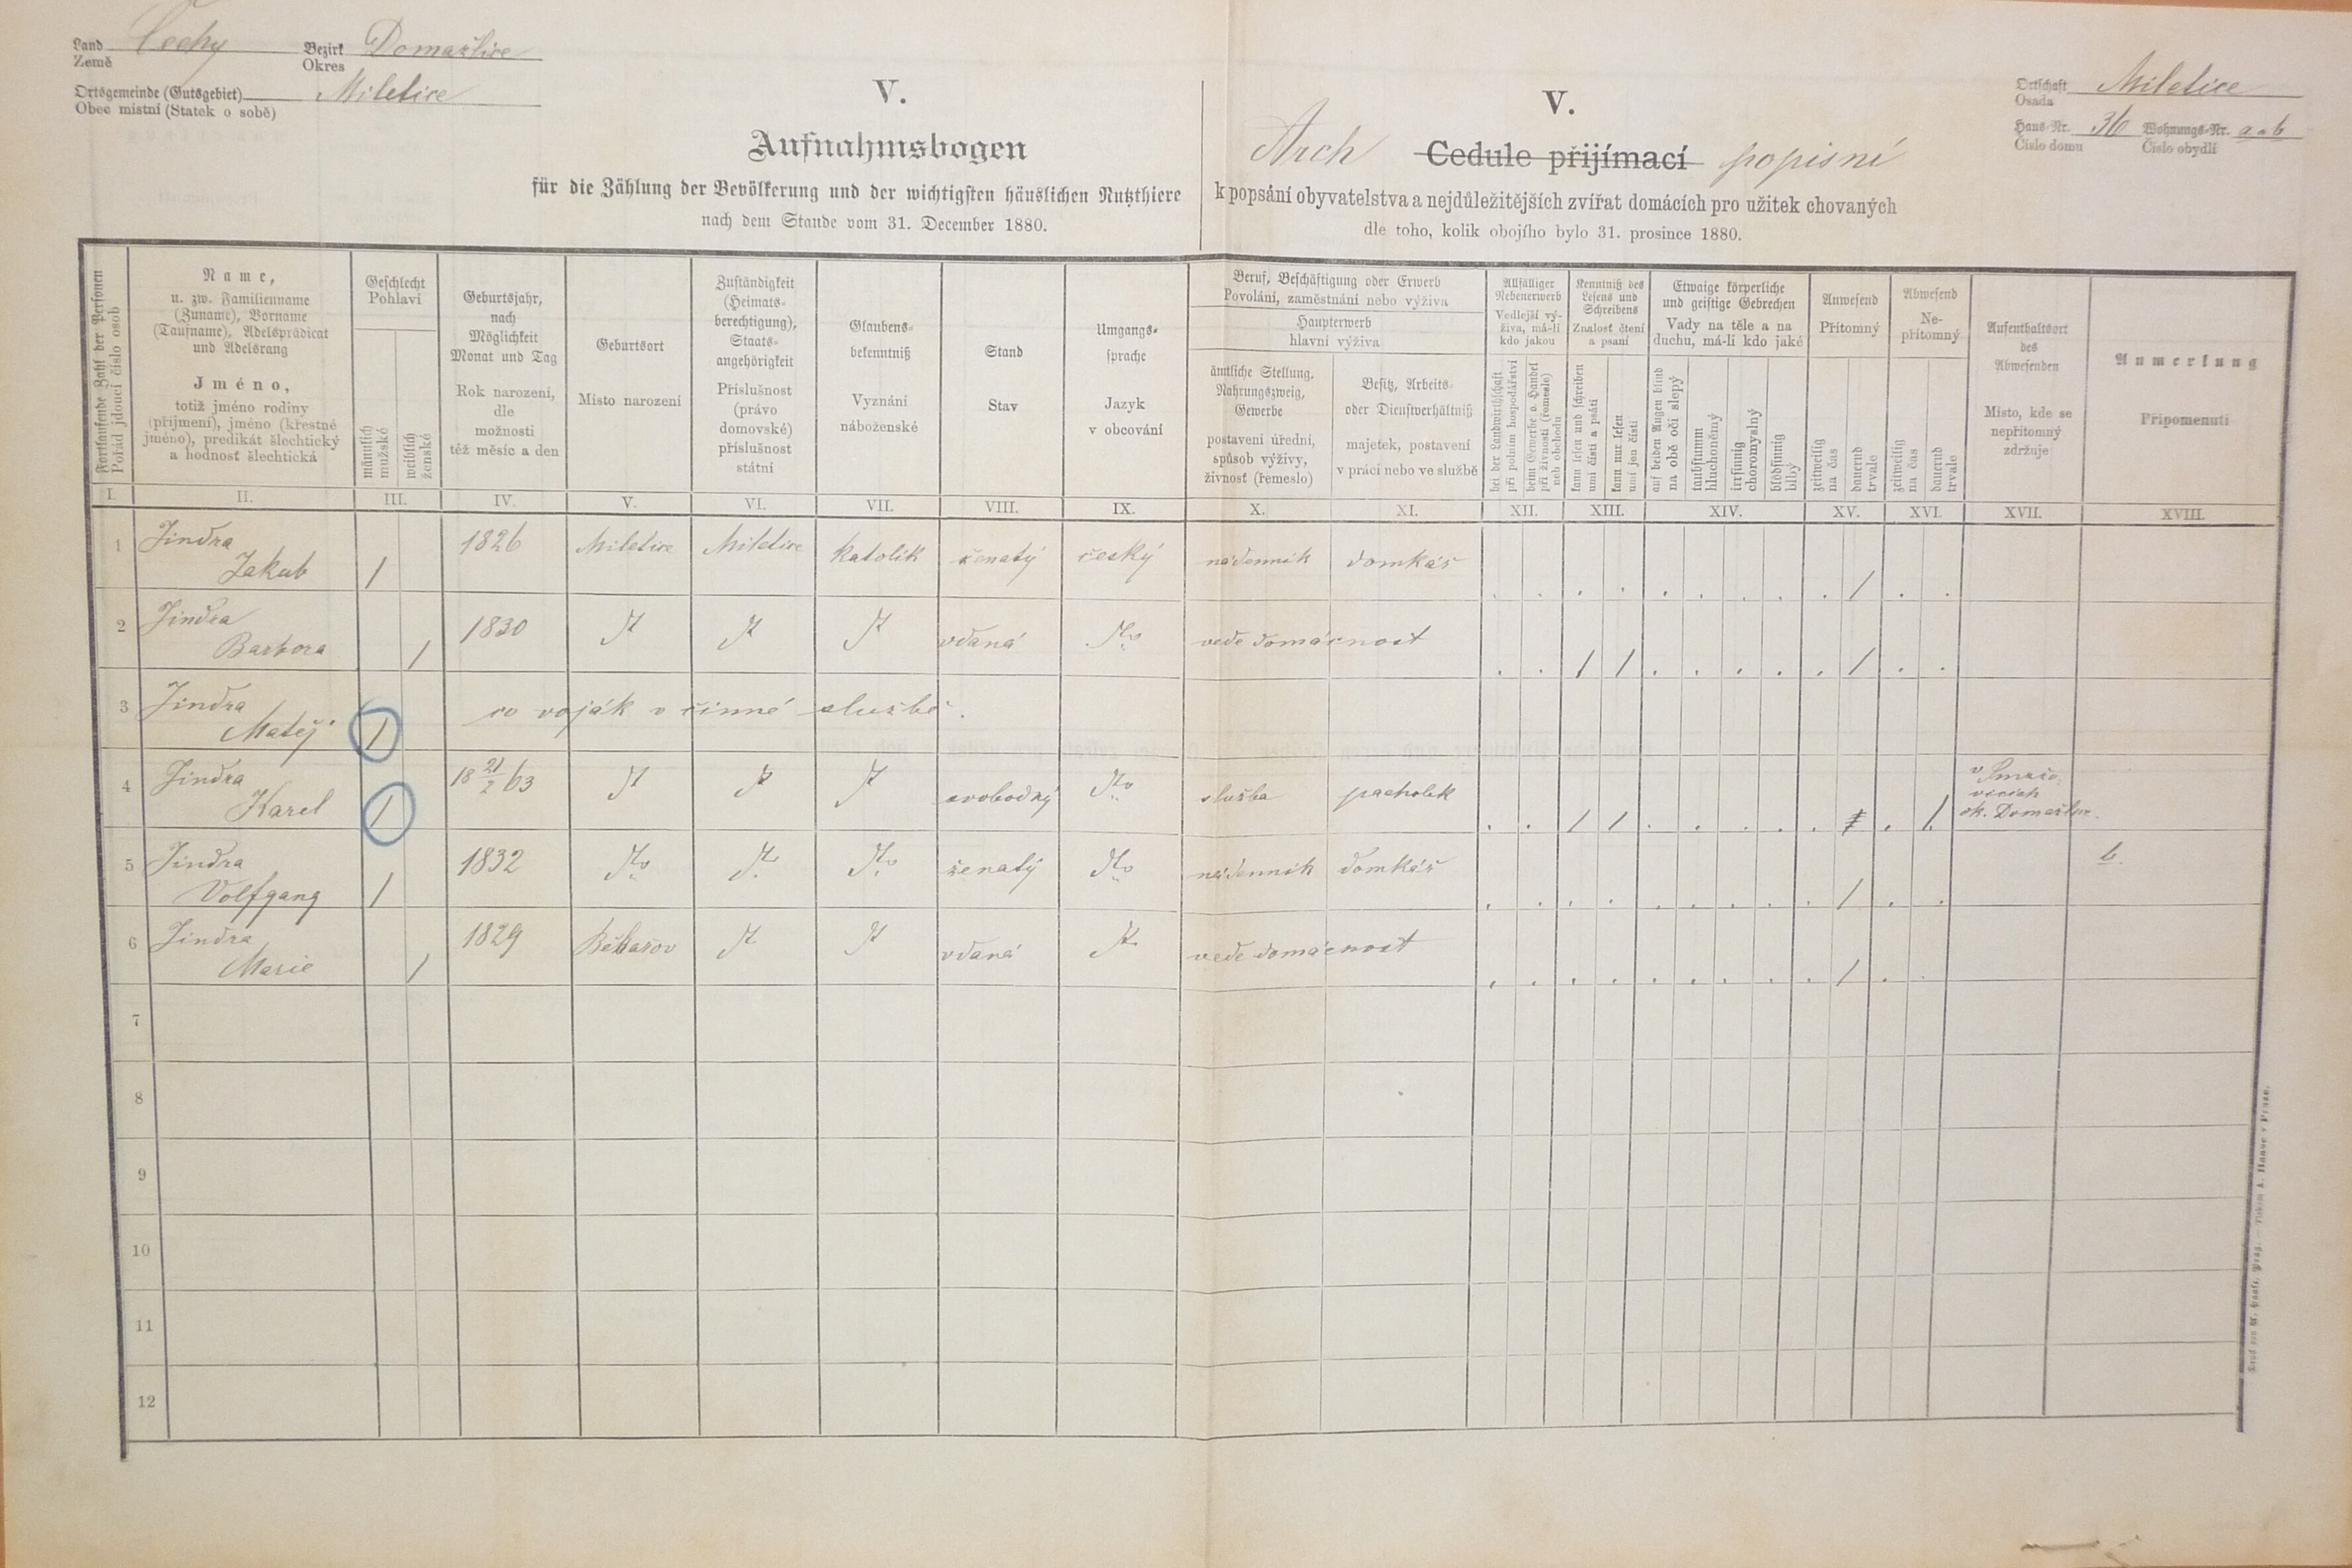 Land Čechy Bezirk Domažlice
Země Okres
Ortsgemeinde (Gutsgebiet) Miletice
Obec místní (Statek o sobě)
V.
Aufnahmsbogen
für die Zählung der Bevölkerung und der wichtigsten häuslichen Nutzthiere
nach dem Stande vom 31. December 1880.
V.
Arch Cedule přijímací popisní
k popsání obyvatelstva a nejdůležitějších zvířat domácích pro užitek chovaných
dle toho, kolik obojího bylo 31. prosince 1880.
Ortschaft Miletice
Osada
Haus-Nr. 36 Wohnungs-Nr. a a b
Číslo domu Číslo obydlí
Fortlaufende Zahl der Personen
Pořád jdoucí číslo osob
Name,
u. zw. Familienname
(Zuname), Vorname
(Taufname), Adelsprädicat
und Adelsrang
Jméno,
totiž jméno rodiny
(příjmení), jméno (křestné
jméno), predikát šlechtický
a hodnosť šlechtická
Geschlecht
Pohlaví
männlich
mužské
weiblich
ženské
Geburtsjahr,
nach
Möglichkeit
Monat und Tag
Rok narození,
dle
možnosti
též měsíc a den
Geburtsort
Místo narození
Zuständigkeit
(Heimats-
berechtigung),
Staats-
angehörigkeit
Příslušnost
(právo
domovské)
příslušnost
státní
Glaubens-
bekenntniß
Vyznání
náboženské
Stand
Stav
Umgangs-
sprache
Jazyk
v obcování
Beruf, Beschäftigung oder Erwerb
Povolání, zaměstnání nebo výživa
Haupterwerb
hlavní výživa
ämtliche Stellung,
Nahrungszweig,
Gewerbe
postavení úřední,
spůsob výživy,
živnosť (řemeslo)
Besitz, Arbeits-
oder Dienstverhältniß
majetek, postavení
v práci nebo ve službě
Allfälliger
Nebenerwerb
Vedlejší vý-
živa, má-li
kdo jakou
bei der Landwirthschaft
při polním hospodářství
beim Gewerbe o. Handel
při živnosti (řemesle)
neb obchodu
Kenntniß des
Lesens und
Schreibens
Znalosť čtení
a psaní
kann lesen und schreiben
umí čísti a psáti
kann nur lesen
umí jen čísti
Etwaige körperliche
und geistige Gebrechen
Vady na těle a na
duchu, má-li kdo jaké
auf beiden Augen blind
na obě oči slepý
taubstumm
hluchoněmý
irrsinnig
choromyslný
blödsinnig
blbý
Anwesend
Přítomný
zeitweilig
na čas
dauernd
trvale
Abwesend
Ne-
přítomný
zeitweilig
na čas
dauernd
trvale
Aufenthaltsort
des
Abwesenden
Místo, kde se
nepřítomný
zdržuje
Anmerkung
Připomenutí
I. II. III. IV. V. VI. VII. VIII. IX. X. XI. XII. XIII. XIV. XV. XVI. XVII. XVIII.
1 Jindra 1826 Miletice Miletice katolík ženatý český nádenník domkář
Jakub /
2 Jindra 1830 vdaná vede domácnost
Barbora /
3 Jindra co voják v činné službě.
Matěj /
4 Jindra 18 21/2 63 svobodný služba pacholek
Karel /
ok. Domažlice.
5 Jindra 1832 ženatý nádenník domkář b.
Volfgang /
6 Jindra 1829 vdaná vede domácnost
Marie /
7
8
9
10
11
12